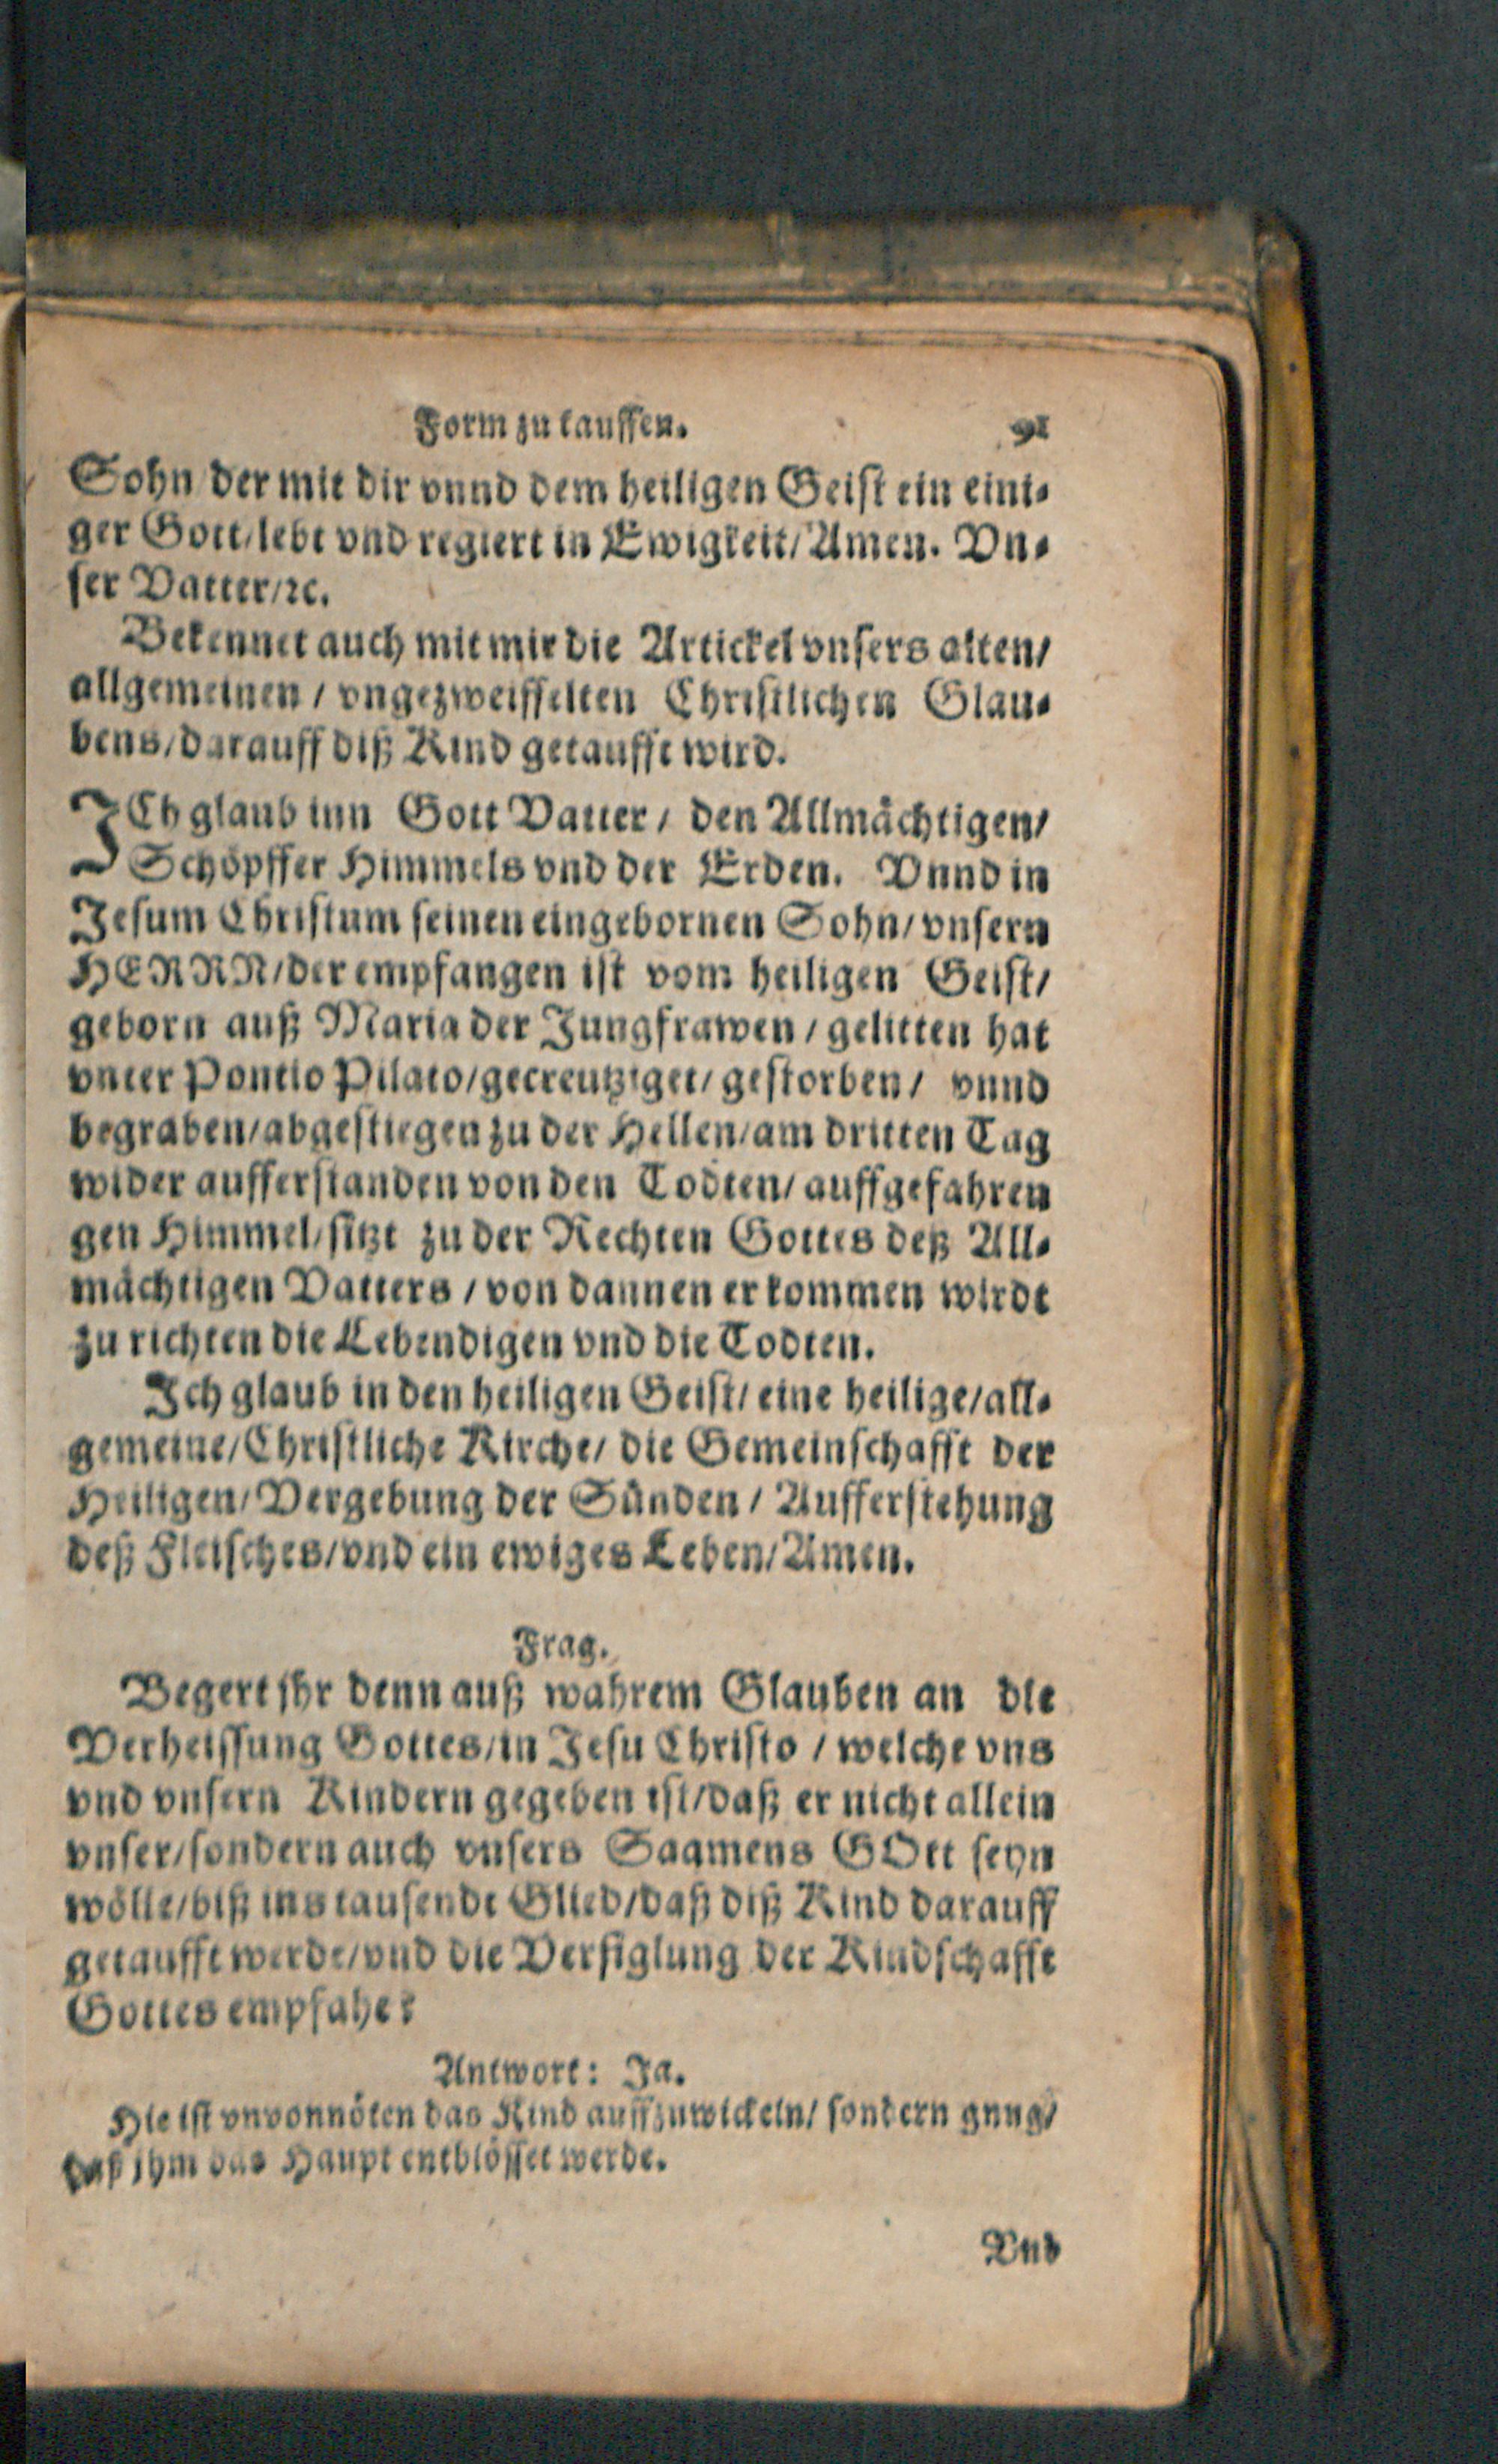 Form zu tauffen. 91
Sohn der mit dir vnnd dem heiligen Geist ein eini-
ger Gott/ lebt vnd regiert in Ewigkeit/ Amen. Vn-
ser Vatter/ ꝛc.
Bekennet auch mit mir die Artickel vnsers alten/
allgemeinen / vngezweiffelten Christlichen Glau-
bens/ darauff diß Kind getaufft wird.
ICh glaub inn Gott Vatter / den Allmächtigen/
Schöpffer Himmels vnd der Erden. Vnnd in
Jesum Christum seinen eingebornen Sohn/ vnsern
HERRN/ der empfangen ist vom heiligen Geist/
geborn auß Maria der Jungfrawen / gelitten hat
vnter Pontio Pilato/ gecreutziget/ gestorben / vnnd
begraben/ abgestiegen zu der Hellen/ am dritten Tag
wider aufferstanden von den Todten/ auffgefahren
gen Himmel/ sitzt zu der Rechten Gottes deß All-
mächtigen Vatters / von dannen er kommen wirdt
zu richten die Lebendigen vnd die Todten.
Ich glaub in den heiligen Geist/ eine heilige/ all-
gemeine/ Christliche Kirche/ die Gemeinschafft der
Heiligen/ Vergebung der Sünden / Aufferstehung
deß Fleisches/ vnd ein ewiges Leben/ Amen.
Frag.
Begert jhr denn auß wahrem Glauben an die
Verheissung Gottes/ in Jesu Christo / welche vns
vnd vnsern Kindern gegeben ist/ daß er nicht allein
vnser/ sondern auch vnsers Saamens GOtt seyn
wölle/ biß ins tausende Glied/ daß diß Kind darauff
getaufft werde/ vnd die Versiglung der Kindschafft
Gottes empfahe?
Antwort: Ja.
Hie ist vnvonnöten das Kind auffzuwickeln/ sondern gnug/
daß jhm das Haupt entblösset werde.
Vnd